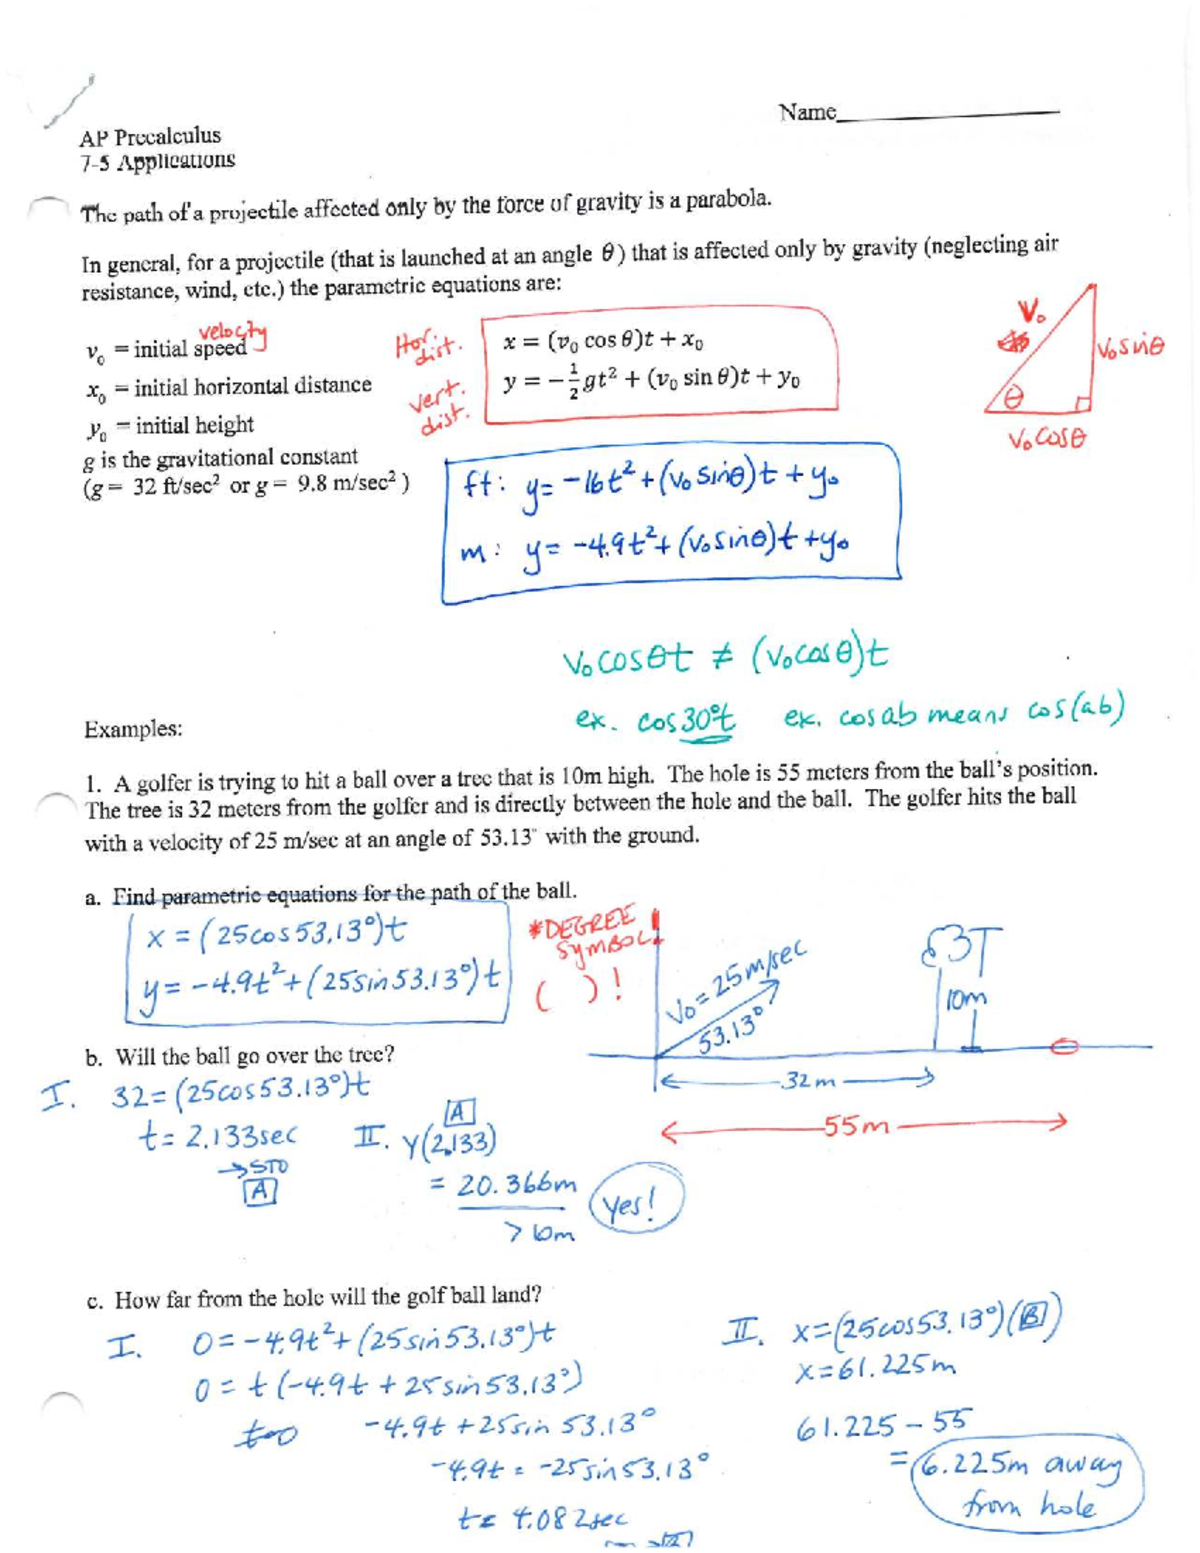 Name
AP Precalculus
7-5 Applications
The path of a projectile affected only by the force of gravity is a parabola.
In general, for a projectile (that is launched at an angle θ) that is affected only by gravity (neglecting air
resistance, wind, etc.) the parametric equations are:
velocity
v₀ = initial speed
x₀ = initial horizontal distance
y₀ = initial height
g is the gravitational constant
(g = 32 ft/sec² or g = 9.8 m/sec²)
Hor. dist.
x = (v₀ cos θ)t + x₀
vert. dist.
y = −½gt² + (v₀ sin θ)t + y₀
V₀
V₀sinθ
θ
V₀cosθ
ft: y = -16t² + (V₀ sinθ)t + y₀
m: y = -4.9t² + (V₀sinθ)t + y₀
V₀cosθt ≠ (V₀cosθ)t
ex. cos30°t ex. cosab means cos(ab)
Examples:
1. A golfer is trying to hit a ball over a tree that is 10m high. The hole is 55 meters from the ball's position.
The tree is 32 meters from the golfer and is directly between the hole and the ball. The golfer hits the ball
with a velocity of 25 m/sec at an angle of 53.13° with the ground.
a. Find parametric equations for the path of the ball.
x = (25cos53.13°)t
y = -4.9t² + (25sin53.13°)t
*DEGREE
SYMBOL!
( )!
V₀ = 25m/sec
53.13°
10m
32m
55m
b. Will the ball go over the tree?
I. 32 = (25cos53.13°)t
t = 2.133sec
→STO
A
II. Y(2.133)
A
= 20.366m
> 10m
yes!
c. How far from the hole will the golf ball land?
I. 0 = -4.9t² + (25sin53.13°)t
0 = t(-4.9t + 25sin53.13°)
t=0 -4.9t + 25sin 53.13°
-4.9t = -25sin53.13°
t = 4.082sec
II. x = (25cos53.13°)(B)
x = 61.225m
61.225 - 55
= 6.225m away
from hole